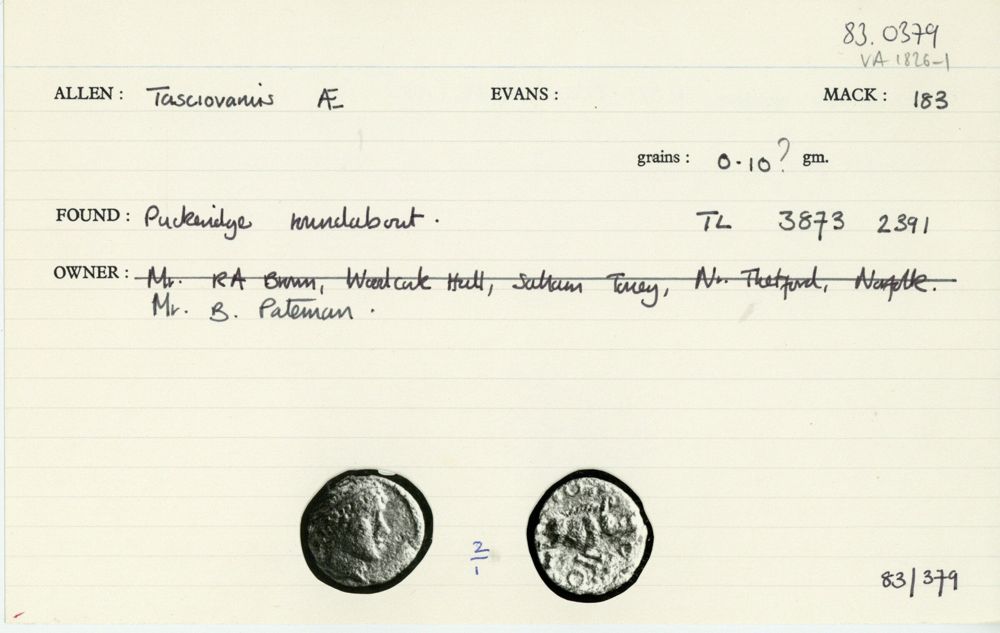 83.0379
VA 1826-1
ALLEN : Tasciovanus Æ EVANS : MACK : 183
grains : 0.10? gm.
FOUND : Puckeridge roundabout. TL 3873 2391
OWNER : Mr. RA Brown, Woodcock Hall, Saham Toney, Nr. Thetford, Norfolk.
Mr. B. Pateman.
2
1
83/379